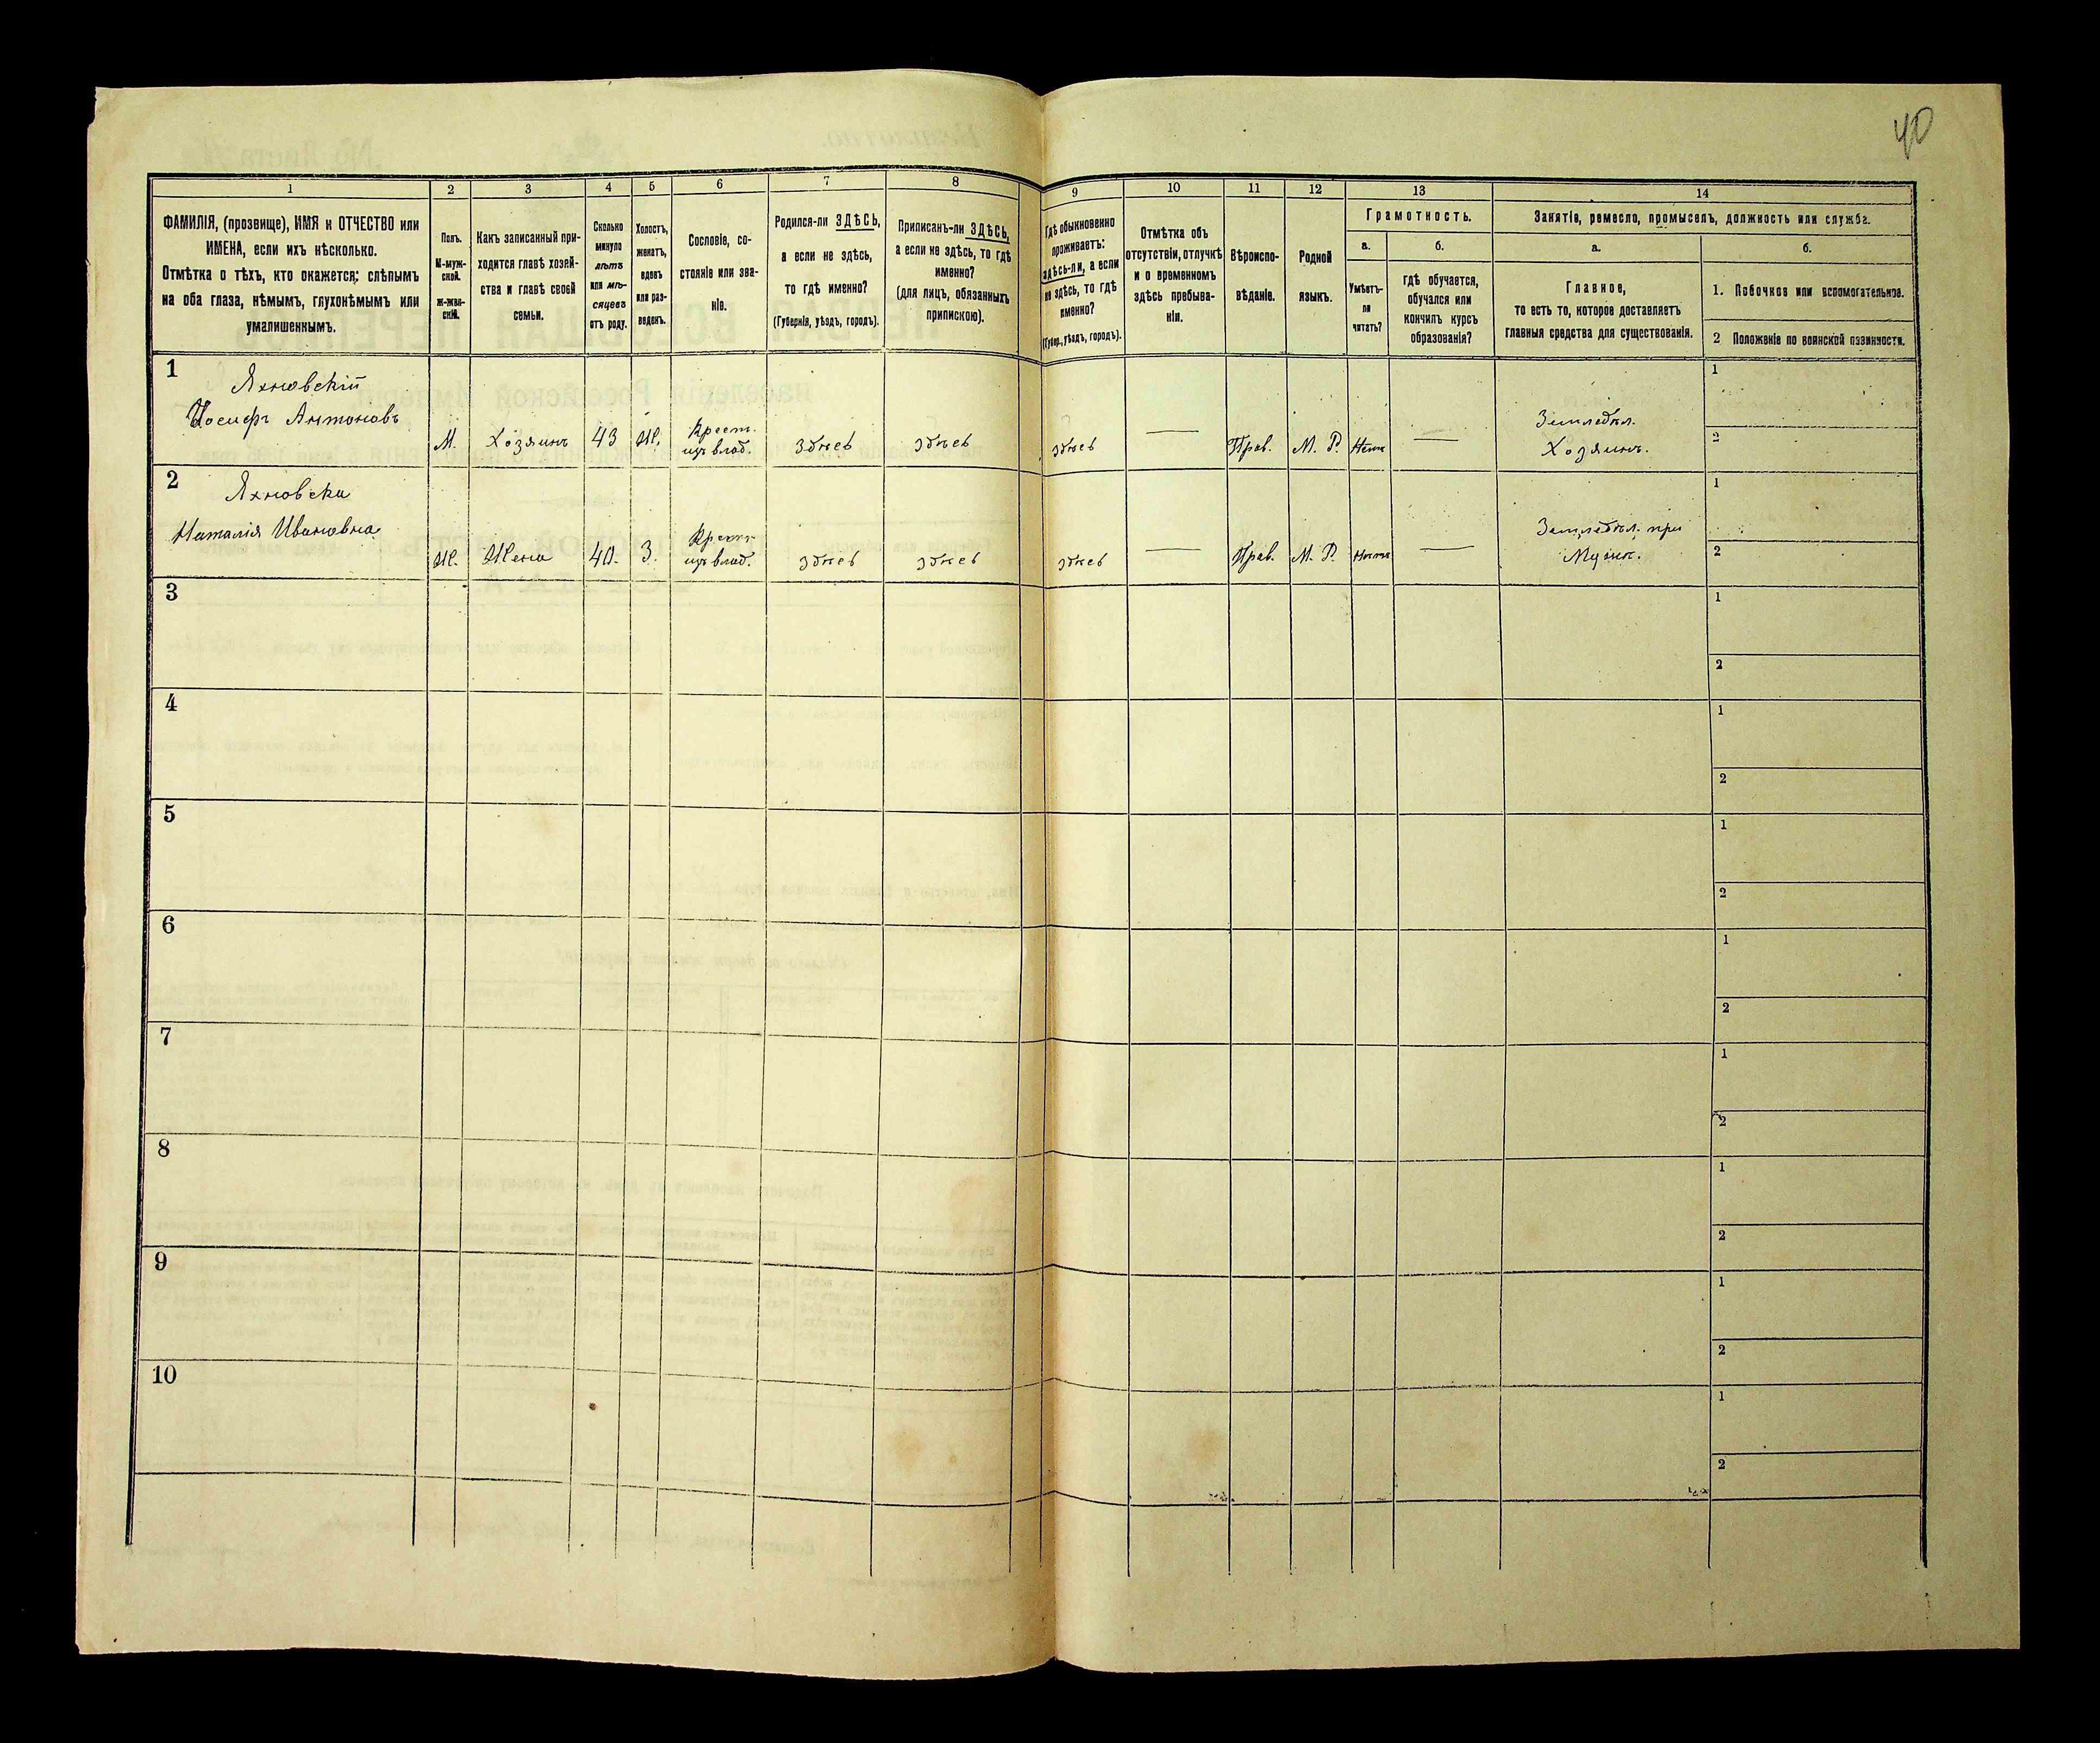 40
1 2 3 4 5 6 7 8 9 10 11 12 13 14
ФАМИЛІЯ, (прозвище), ИМЯ и ОТЧЕСТВО или
ИМЕНА, если ихъ нѣсколько.
Отмѣтка о тѣхъ, кто окажется: слѣпымъ
на оба глаза, нѣмымъ, глухонѣмымъ или
умалишеннымъ.
Полъ.
М-муж-
ской.
ж-жен-
скій.
Какъ записанный при-
ходится главѣ хозяй-
ства и главѣ своей
семьи.
Сколько
минуло
лѣтъ
или мѣ-
сяцевъ
отъ роду.
Холостъ,
женатъ,
вдовъ
или раз-
веденъ.
Сословіе, со-
стояніе или зва-
ніе.
Родился-ли ЗДѢСЬ,
а если не здѣсь,
то гдѣ именно?
(Губернія, уѣздъ, городъ).
Приписанъ-ли ЗДѢСЬ,
а если не здѣсь, то гдѣ
именно?
(для лицъ, обязанныхъ
припискою).
Гдѣ обыкновенно
проживаетъ:
здѣсь-ли, а если
не здѣсь, то гдѣ
именно?
(Губер., уѣздъ, городъ).
Отмѣтка объ
отсутствіи, отлучкѣ
и о временномъ
здѣсь пребыва-
ніи.
Вѣроиспо-
вѣданіе.
Родной
языкъ.
Грамотность.
а. б.
Умѣетъ-
ли
читать?
гдѣ обучается,
обучался или
кончилъ курсъ
образованія?
Занятіе, ремесло, промыселъ, должность или служба.
а. б.
Главное,
то есть то, которое доставляетъ
главныя средства для существованія.
1. Побочное или вспомогательное.
2 Положеніе по воинской повинности.
1
Яхновскій
Иосифъ Антоновъ
М. Хозяинъ 43 Ж. Крест.
изъ влад. здѣсь здѣсь здѣсь — Прав. М. Р. Нѣтъ —
Земледѣл.
Хозяинъ.
1
2
2
Яхновска
Наталія Ивановна
Ж. Жена 40. З. Крест.
изъ влад. здѣсь здѣсь здѣсь — Прав. М. Р. Нѣтъ —
Земледѣл. при
Мужѣ.
1
2
3
1
2
4
1
2
5
1
2
6
1
2
7
1
2
8
1
2
9
1
2
10
1
2